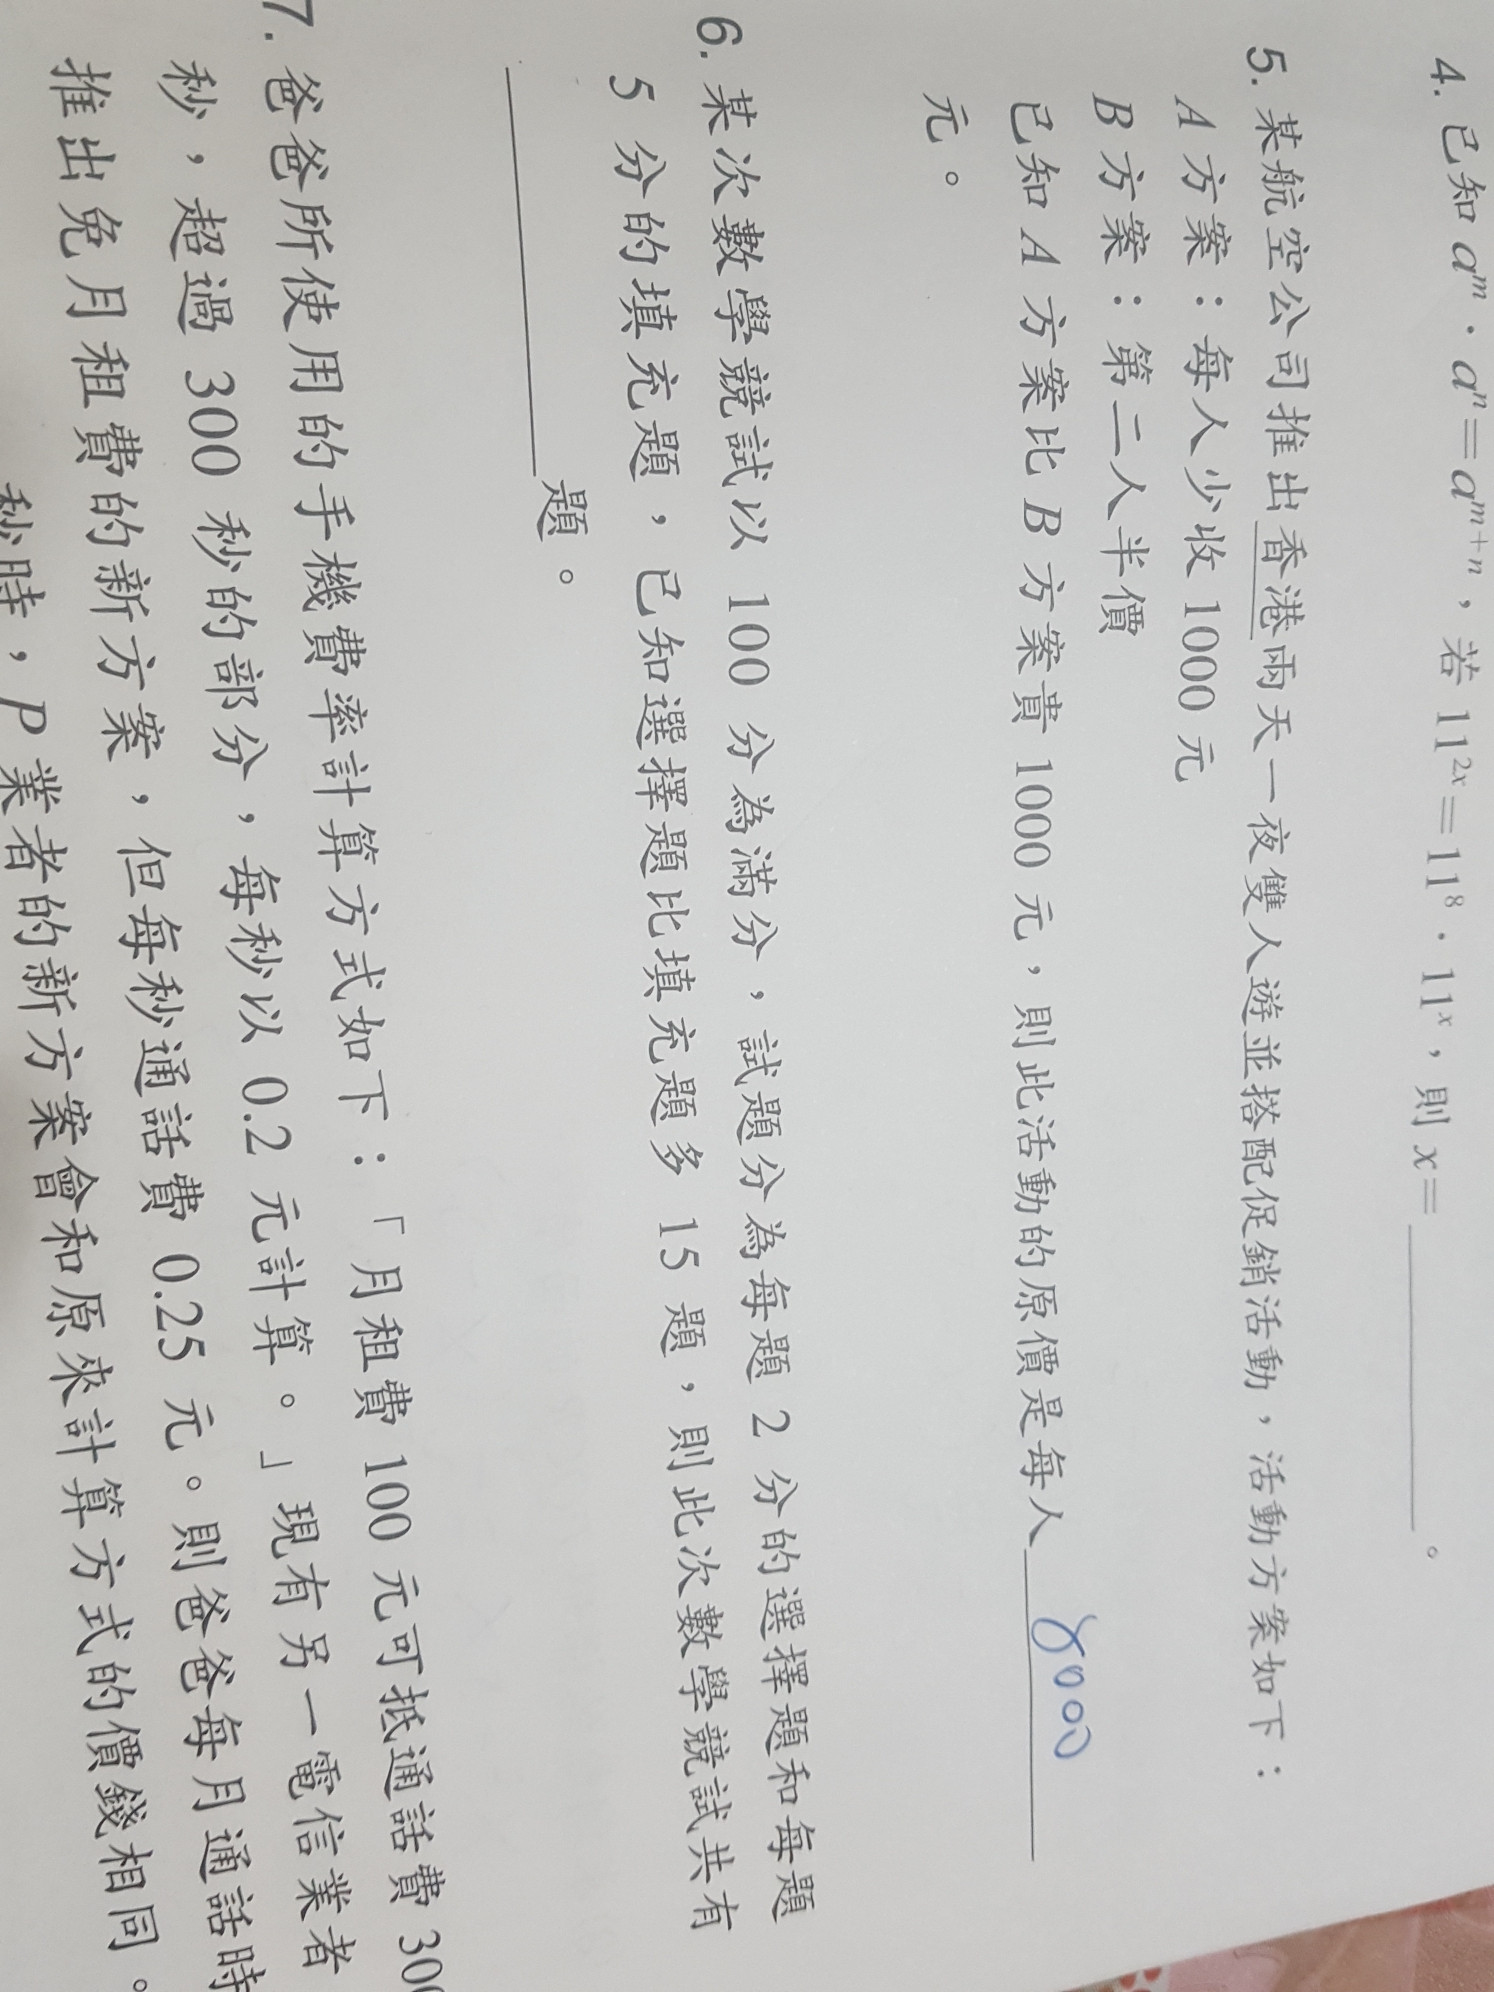 4. 已知 aᵐ．aⁿ＝aᵐ⁺ⁿ，若 11²ˣ＝11⁸．11ˣ，則 x＝________。
5. 某航空公司推出香港兩天一夜雙人遊並搭配促銷活動，活動方案如下：
A 方案：每人少收 1000 元
B 方案：第二人半價
已知 A 方案比 B 方案貴 1000 元，則此活動的原價是每人 8000
元。
6. 某次數學競試以 100 分為滿分，試題分為每題 2 分的選擇題和每題
5 分的填充題，已知選擇題比填充題多 15 題，則此次數學競試共有
________題。
7. 爸爸所使用的手機費率計算方式如下：「月租費 100 元可抵通話費 300
秒，超過 300 秒的部分，每秒以 0.2 元計算。」現有另一電信業者
推出免月租費的新方案，但每秒通話費 0.25 元。則爸爸每月通話時
秒時，P 業者的新方案會和原來計算方式的價錢相同。